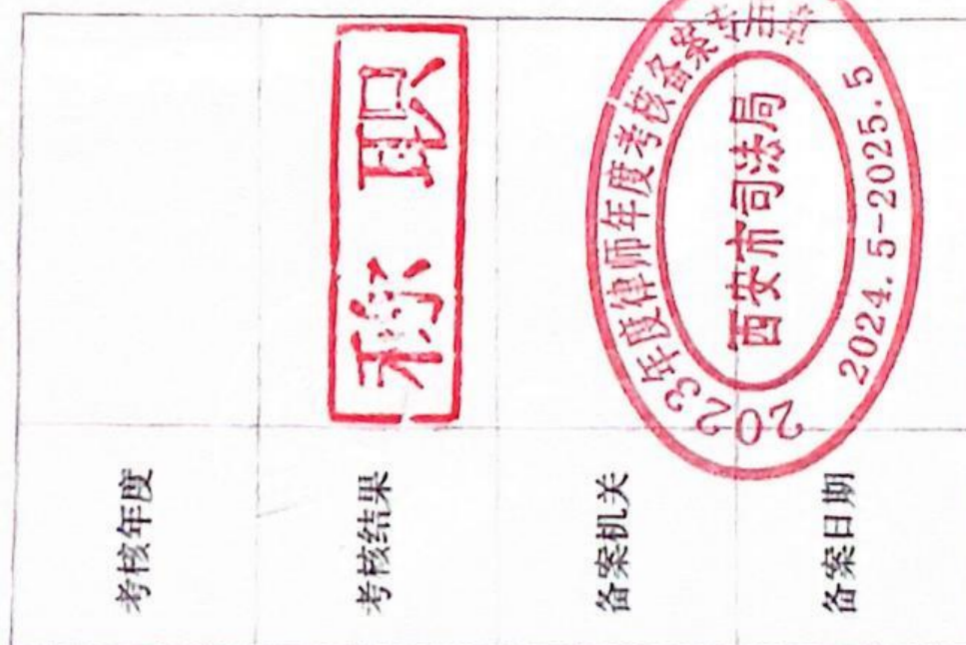 考核年度
考核结果
称职
备案机关
2023年度律师年度考核备案专用章
西安市司法局
2024.5-2025.5
备案日期